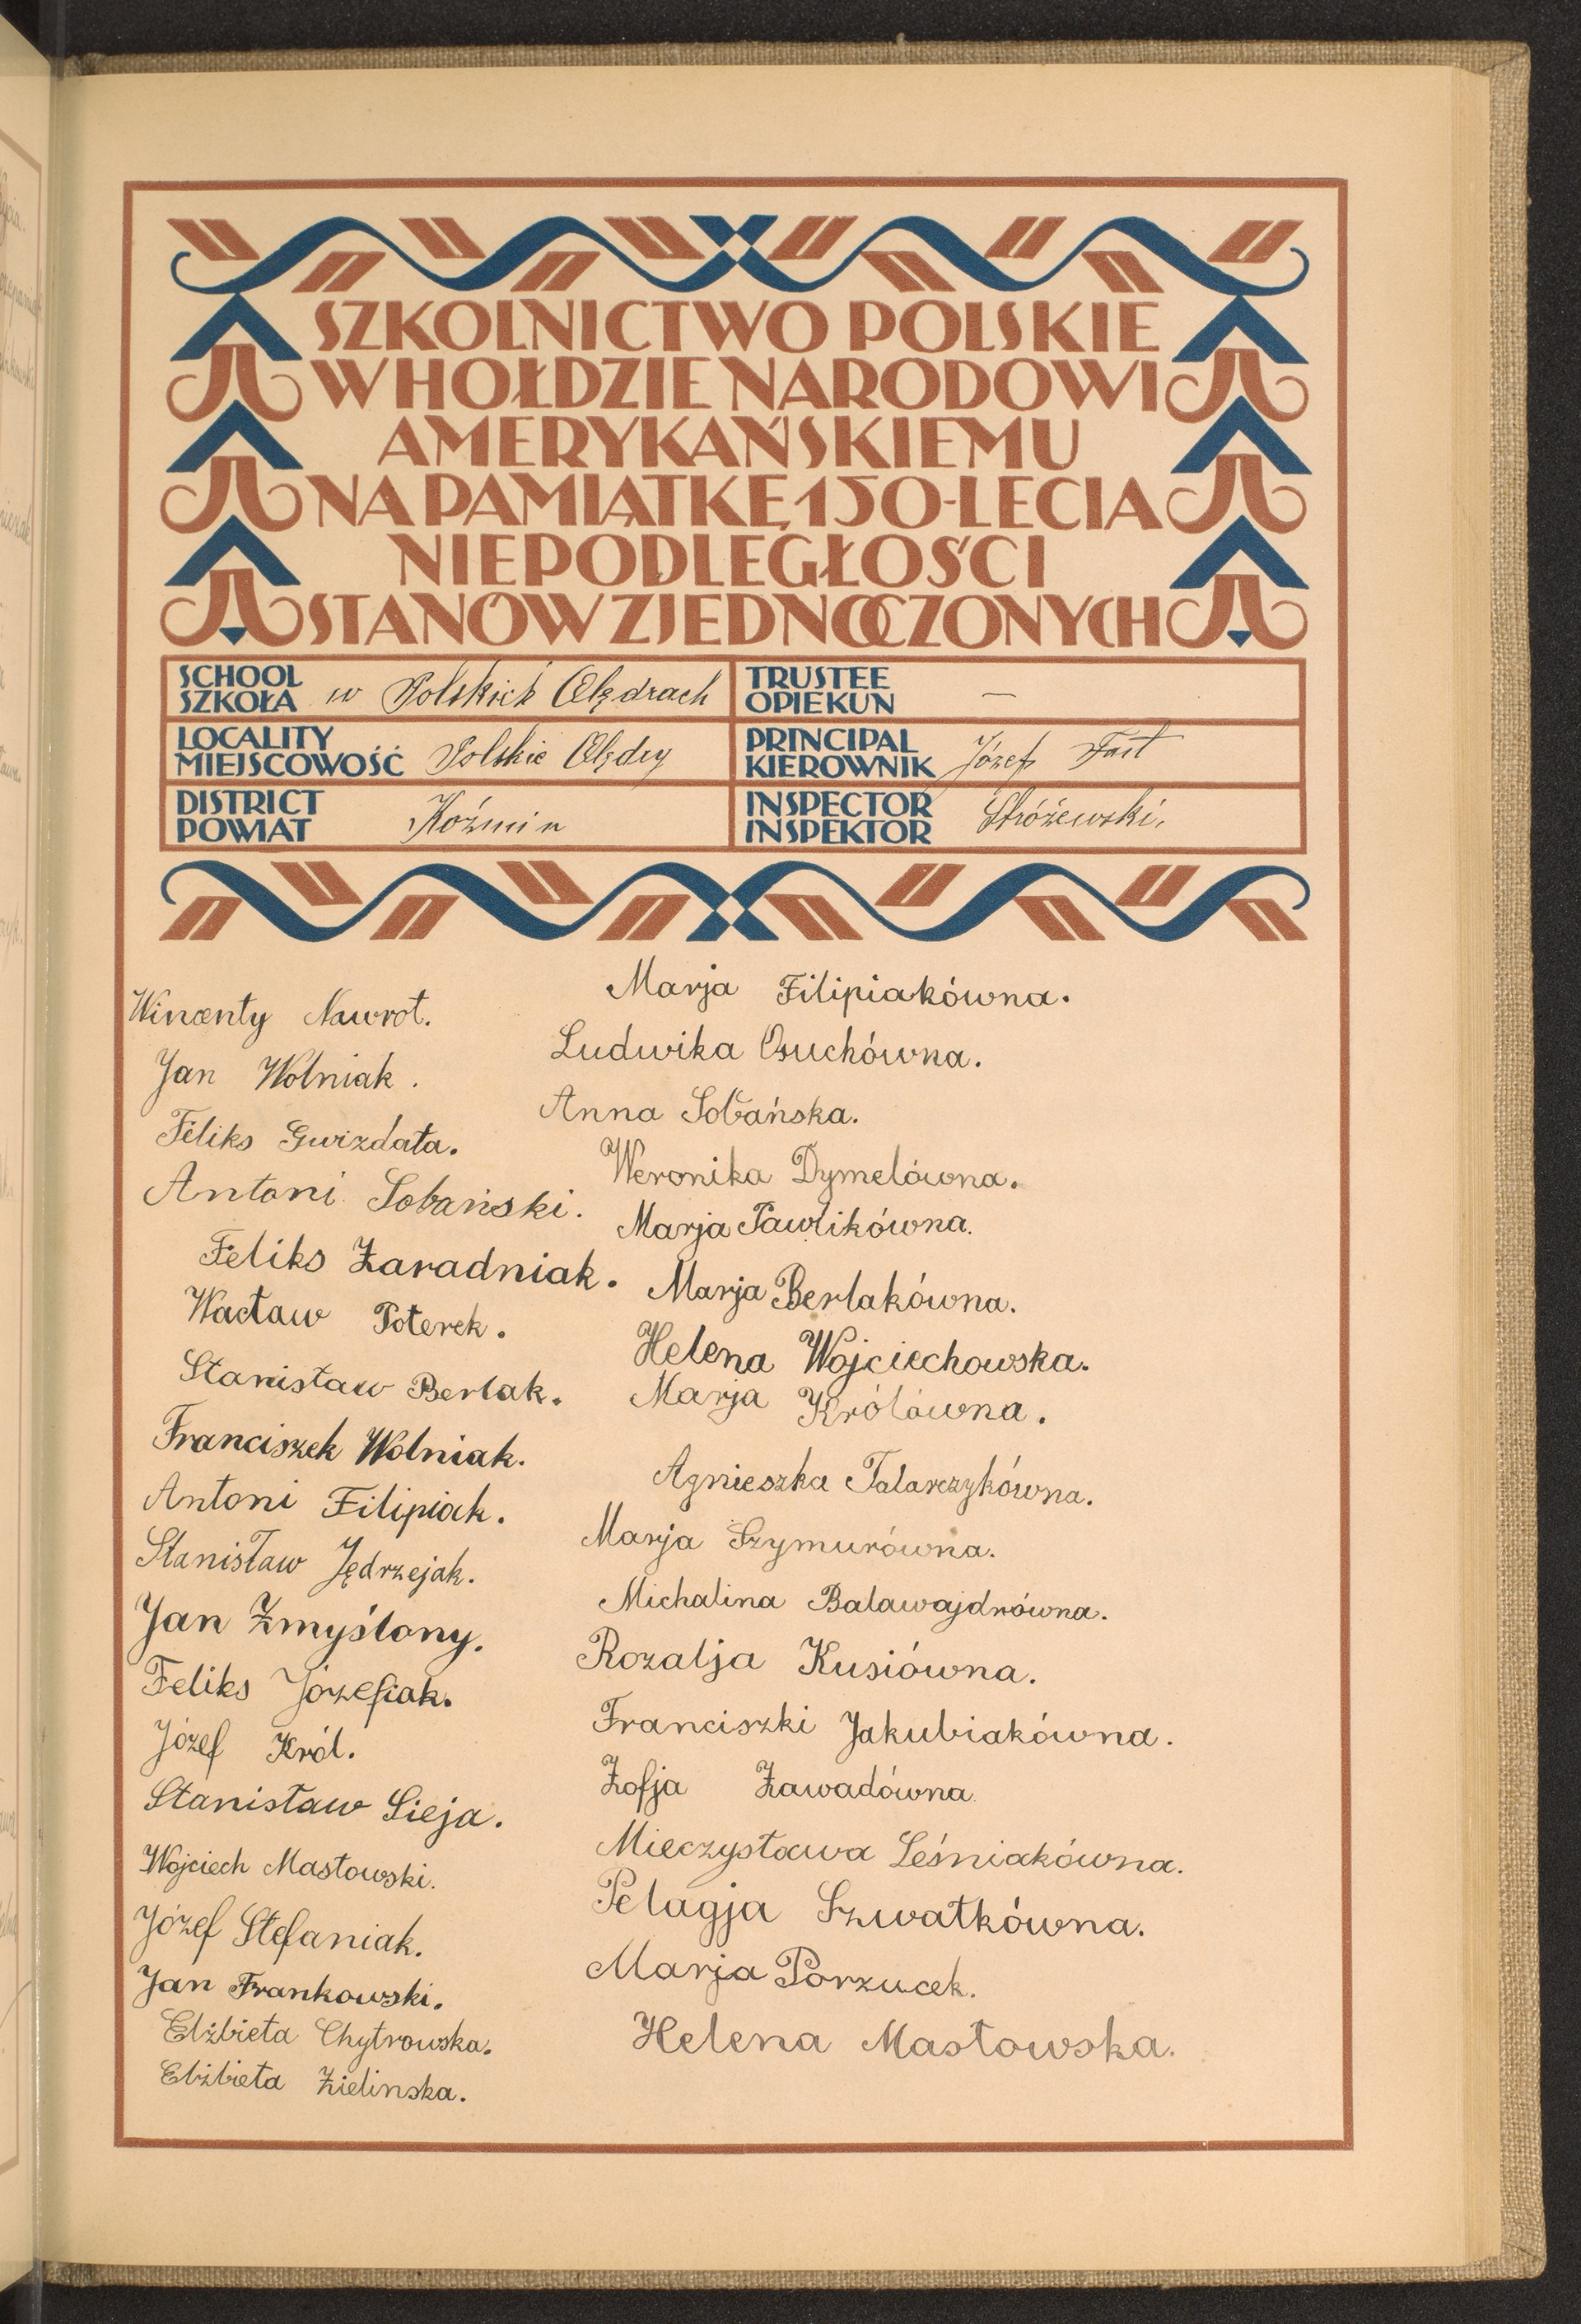 SZKOLNICTWO POLSKIE
W HOŁDZIE NARODOWI
AMERYKAŃSKIEMU
NA PAMIĄTKĘ 150-LECIA
NIEPODLEGŁOŚCI
STANÓW ZJEDNOCZONYCH
SCHOOL
SZKOŁA w Polskich Olędrach
TRUSTEE
OPIEKUN —
LOCALITY
MIEJSCOWOŚĆ Polskie Olędry
PRINCIPAL
KIEROWNIK Józef
DISTRICT
POWIAT Koźmin
INSPECTOR
INSPEKTOR Stróżewski.
Wincenty Nawrot.
Jan Wolniak.
Feliks Gwizdała.
Antoni Sobański.
Feliks Zaradniak.
Wacław Poterek.
Stanisław Berlak.
Franciszek Wolniak.
Antoni Filipiak.
Stanisław Jędrzejak.
Jan Zmyślony.
Feliks Józefiak.
Józef Król.
Stanisław Sieja.
Wojciech Masłowski.
Józef Stefaniak.
Jan Frankowski.
Elżbieta Chytrowska.
Elżbieta Zielinska.
Marja Filipiakówna.
Ludwika Osuchówna.
Anna Sobańska.
Weronika Dymelówna.
Marja Pawlikówna.
Marja Berlakówna.
Helena Wojciechowska.
Marja Królówna.
Agnieszka Talarczykówna.
Marja Szymurówna.
Michalina Balawajdrówna.
Rozalja Kusiówna.
Franciszki Jakubiakówna.
Zofja Zawadówna
Mieczysława Leśniakówna.
Pelagja Szwatkówna.
Marja Porzucek.
Helena Masłowska.